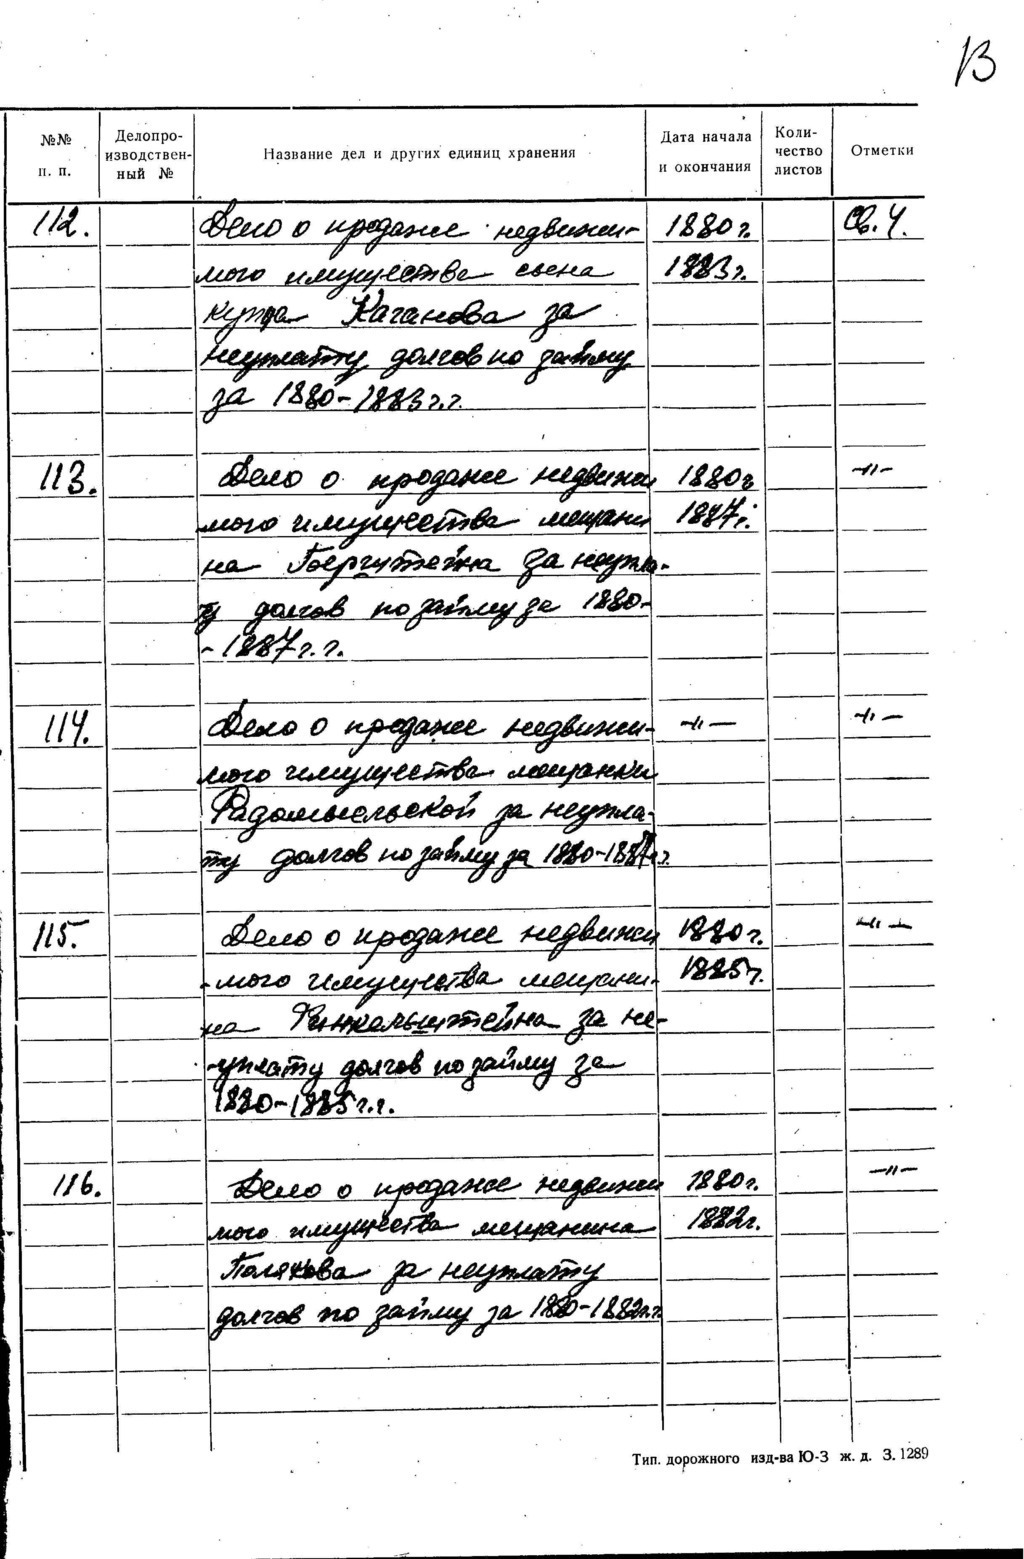 13
№№ п. п.
Делопроизводствен-ный №
Название дел и других единиц хранения
Дата начала и окончания
Количество листов
Отметки
112. Дело о продаже недвижи- 1880 г. Св. 4.
мого имущества сына 1883 г.
купца Каганова за
неуплату долгов по займу
за 1880-1883 г.г.
113. Дело о продаже недвижи 1880 г. -"-
мого имущества мещани 1887 г.
на за неупла-
ту долгов по займу за 1880-
-1887 г.г.
114. Дело о продаже недвижи- -"- -"-
мого имущества мещанки
Радомысельской за неупла-
ту долгов по займу за 1880-1887 г.г.
115. Дело о продаже недвижи 1880 г. -"-
-мого имущества мещани- 1885 г.
на Финкельштейна за не-
-уплату долгов по займу за
1880-1885 г.г.
116. Дело о продаже недвижи 1880 г. -"-
мого имущества мещанина 1882 г.
Полякова за неуплату
долгов по займу за 1880-1882 г.г.
Тип. дорожного изд-ва Ю-З ж. д. З. 1289